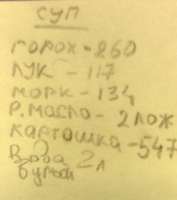 суп
горох-260
лук-117
морк-134
р.масло-2лож
картошка-547
вода 2л